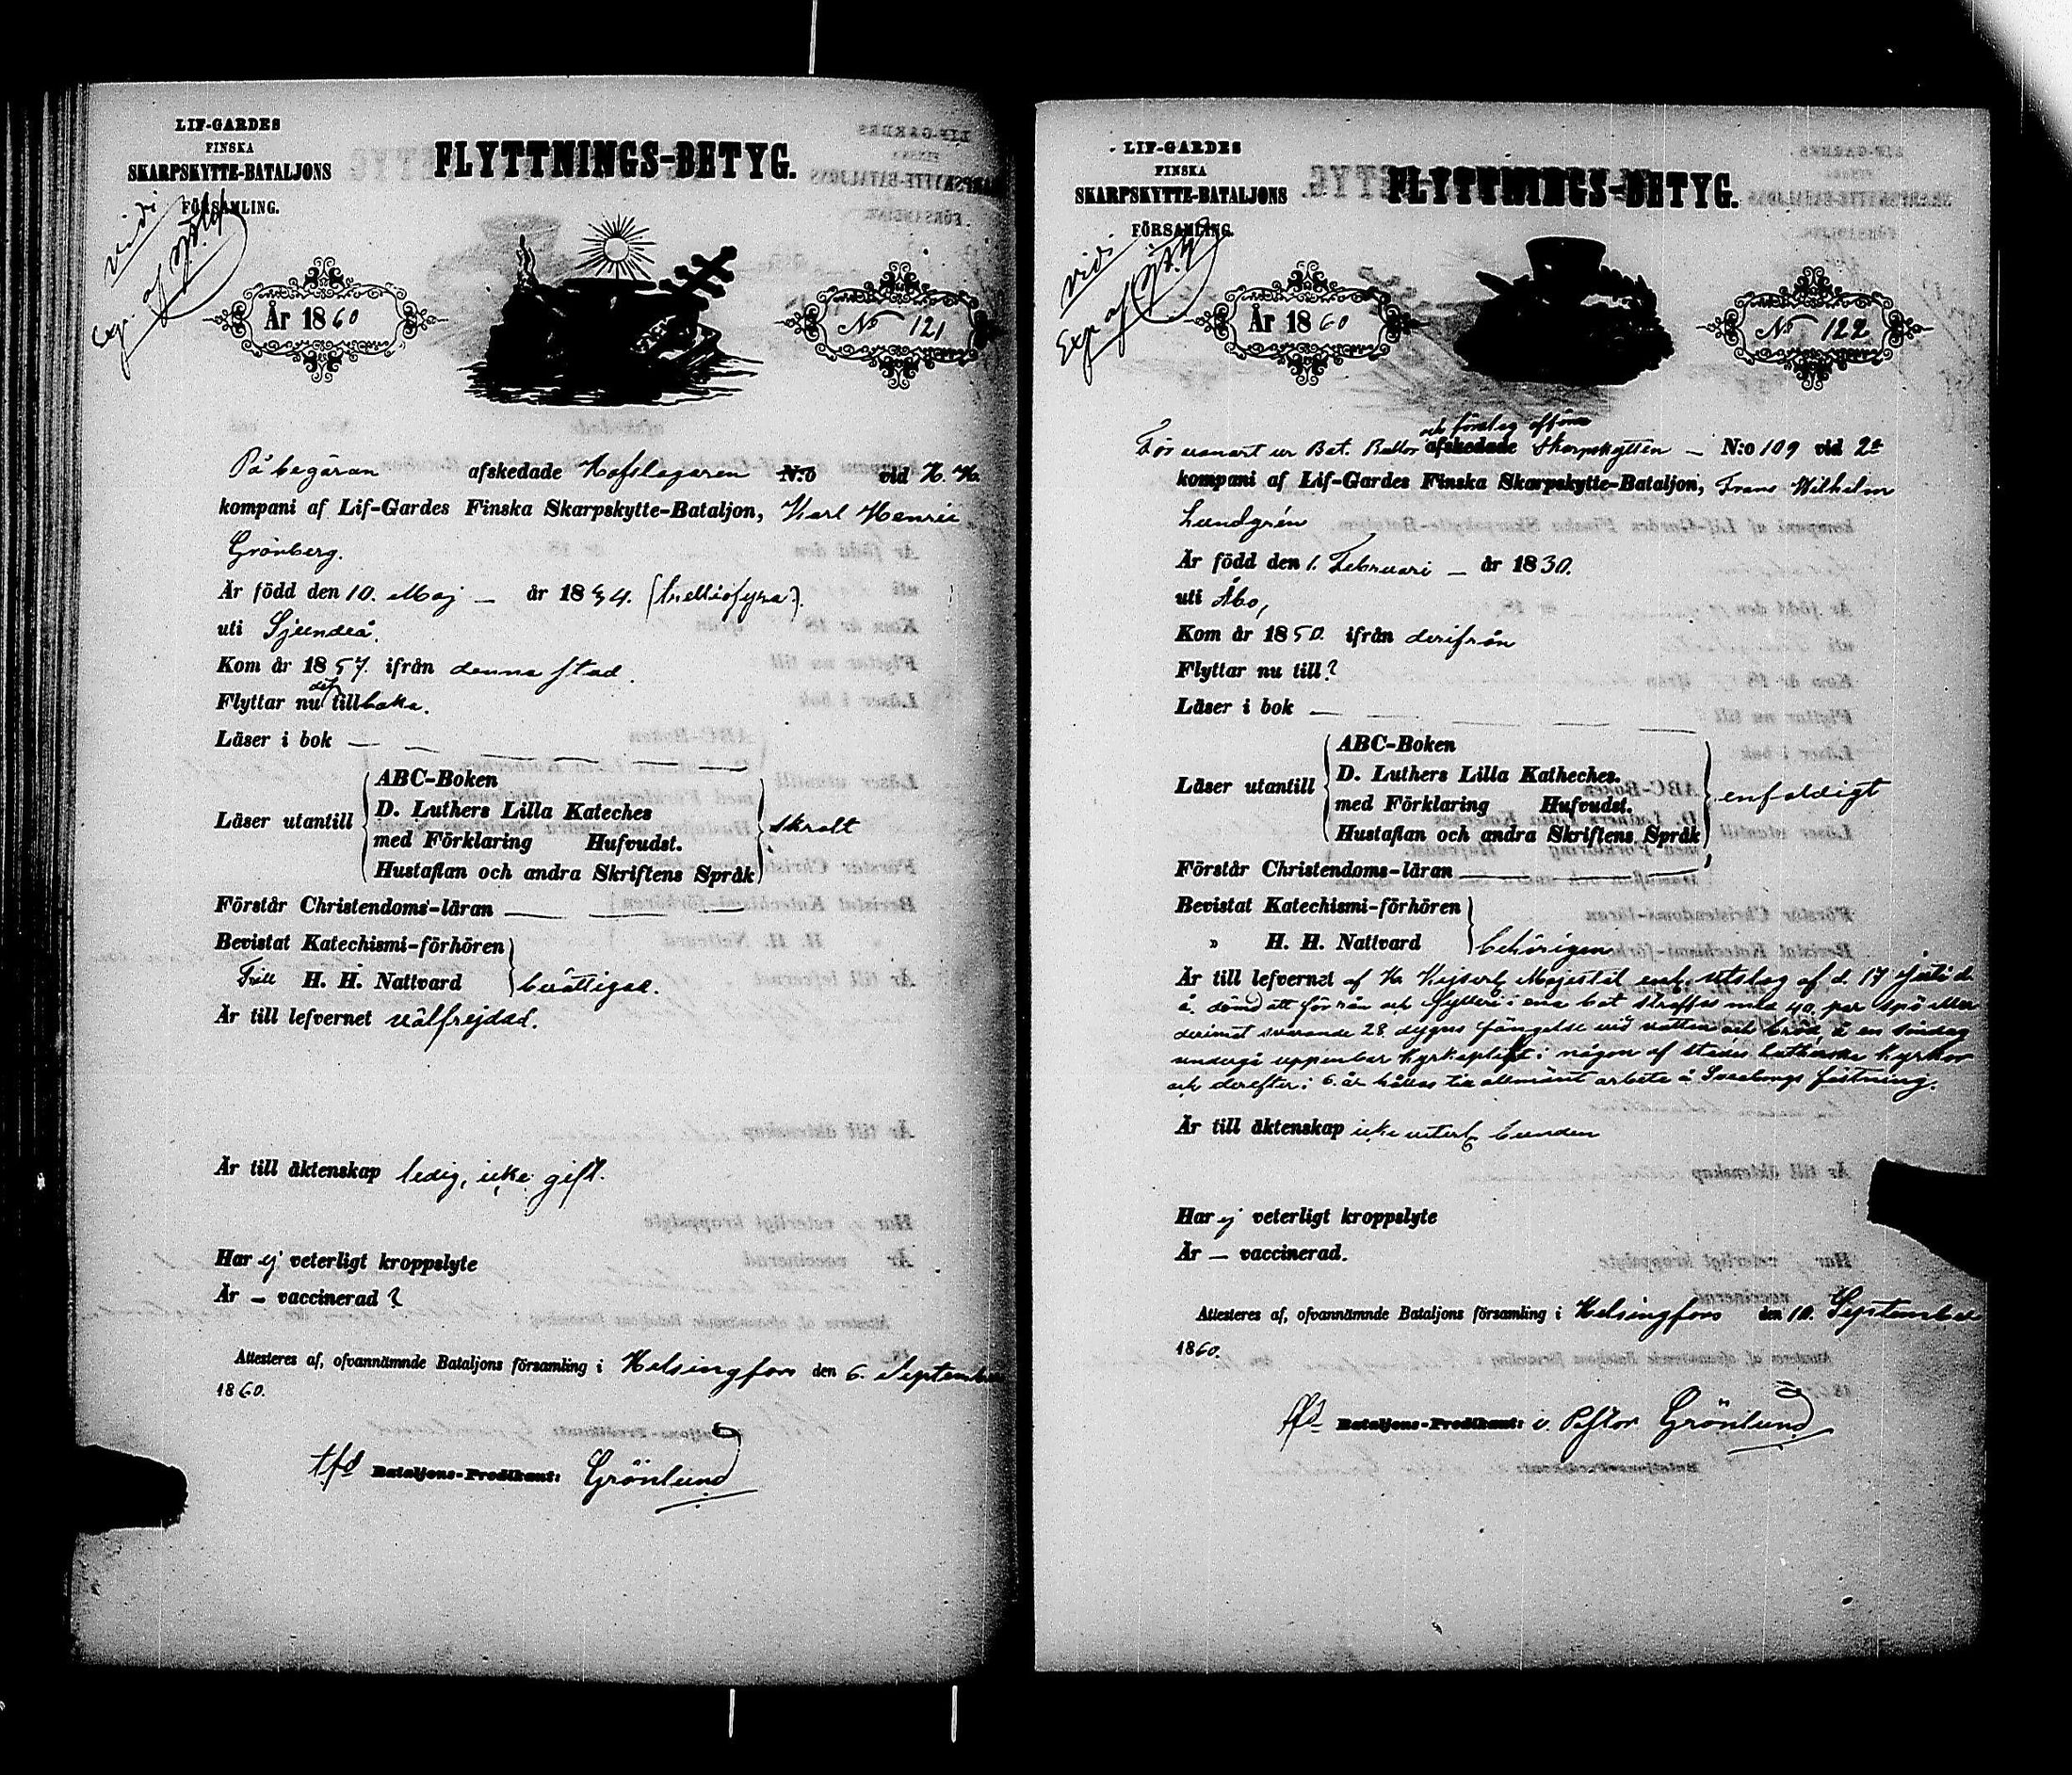 LIF-GARDES
FINSKA
SKARPSKYTTE-BATALJONS
FÖRSAMLING.
FLYTTNINGS-BETYG.
vidi
År 1860
No 121
På begäran afskedade Hofslagaren N:o vid H. H.
kompani af Lif-Gardes Finska Skarpskytte-Bataljon, Karl Henric
Grönberg.
Är född den 10. Maj – år 1834. (trettiofyra).
uti Sjundeå.
Kom år 1857. ifrån denna stad.
Flyttar nu dit tillbaka.
Läser i bok — — — — —
Läser utantill
ABC-Boken
D. Luthers Lilla Kateches
med Förklaring Hufvudst.
Hustaflan och andra Skriftens Språk
skralt
Förstår Christendoms-läran — — —
Bevistat Katechismi-förhören
Till H. H. Nattvard
berättigad.
Är till lefvernet välfrejdad.
Är till äktenskap ledig, icke gift.
Har ej veterligt kroppslyte
Är – vaccinerad?
Attesteres af, ofvannämnde Bataljons församling i Helsingfors den 6. September
1860.
tfd Bataljons-Predikant: Grönlund
LIF-GARDES
FINSKA
SKARPSKYTTE-BATALJONS
FÖRSAMLING.
FLYTTNINGS-BETYG.
vidi
År 1860
No 122
och
För vanart ur Bat. afskedade Skarpskytten – N:o 109 vid 2a
kompani af Lif-Gardes Finska Skarpskytte-Bataljon, Frans Wilhelm
Lundgrén
Är född den 1. Februari – år 1830.
uti Åbo,
Kom år 1850. ifrån derifrån
Flyttar nu till?
Läser i bok — — — — —
Läser utantill
ABC-Boken
D. Luthers Lilla Katheches.
med Förklaring Hufvudst.
Hustaflan och andra Skriftens Språk
enfaldigt
Förstår Christendoms-läran
Bevistat Katechismi-förhören
" H. H. Nattvard
behörigen
Är till lefvernet af H. Kejserl. Majestät enl. utslag af d. 17 Juli d.
å. dömd att för rån och fylleri i ena bot straffas med 40. par spö eller
derimot svarande 28 dygns fängelse vid vatten och bröd, å en söndag
undergå uppenbar kyrkoplikt i någon af stadens lutherska kyrkor
och derefter i 6. år hållas till allmänt arbete å Sveaborgs fästning.
Är till äktenskap icke veterl. bunden
Har ej veterligt kroppslyte
Är – vaccinerad.
Attesteres af, ofvannämnde Bataljons församling i Helsingfors den 10. September
1860.
tfd Bataljons-Predikant: v. Pastor Grönlund